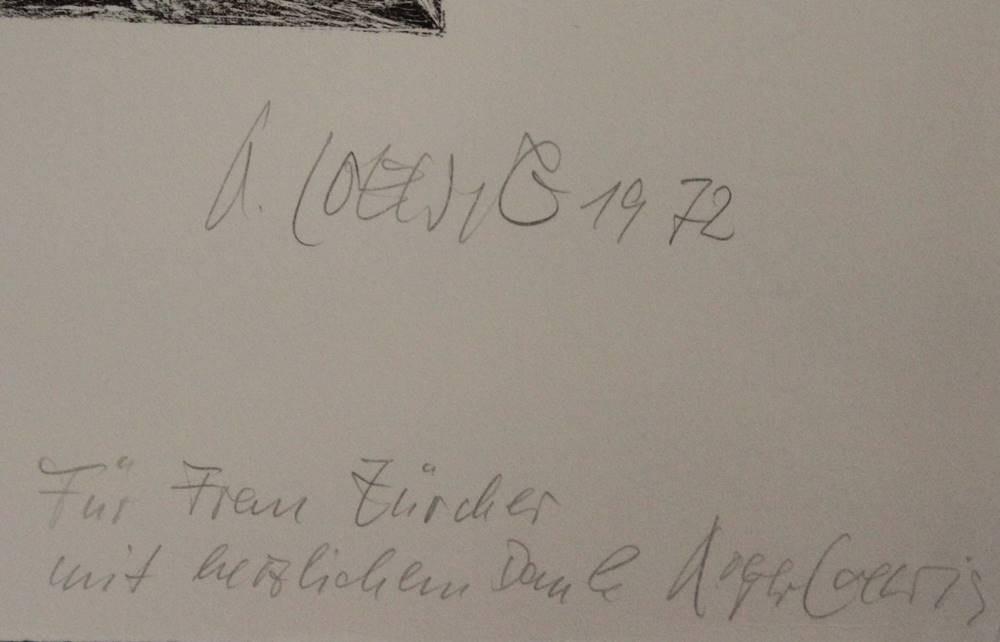 R. LOEWIG 1972
Für Frau Zürcher
mit herzlichem Dank Roger Loewig